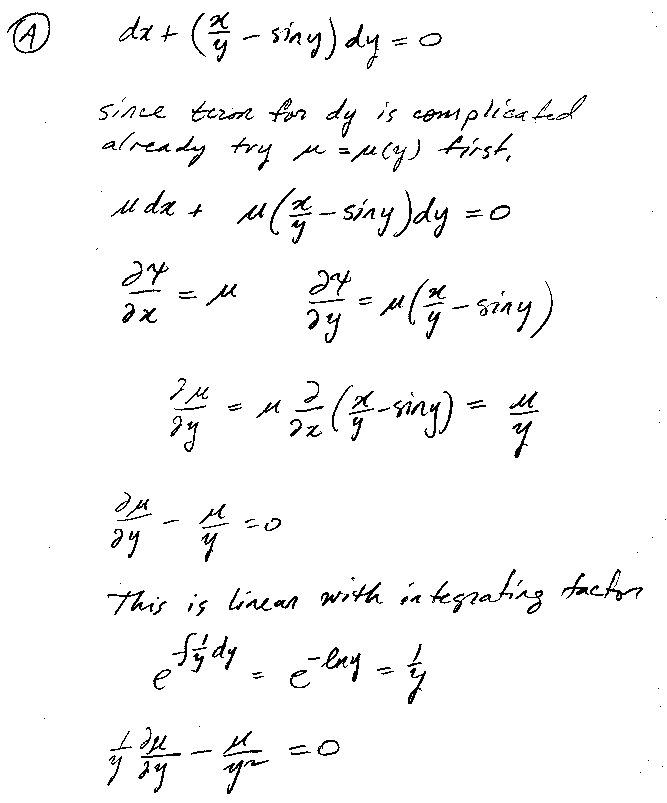 Ⓐ dx + (x/y - sin y) dy = 0
since term for dy is complicated
already try μ = μ(y) first.
μ dx + μ(x/y - sin y) dy = 0
∂ψ/∂x = μ ∂ψ/∂y = μ(x/y - sin y)
∂μ/∂y = μ ∂/∂x (x/y - sin y) = μ/y
∂μ/∂y - μ/y = 0
This is linear with integrating factor
e^{∫1/y dy} = e^{-ln y} = 1/y
1/y ∂μ/∂y - μ/y² = 0